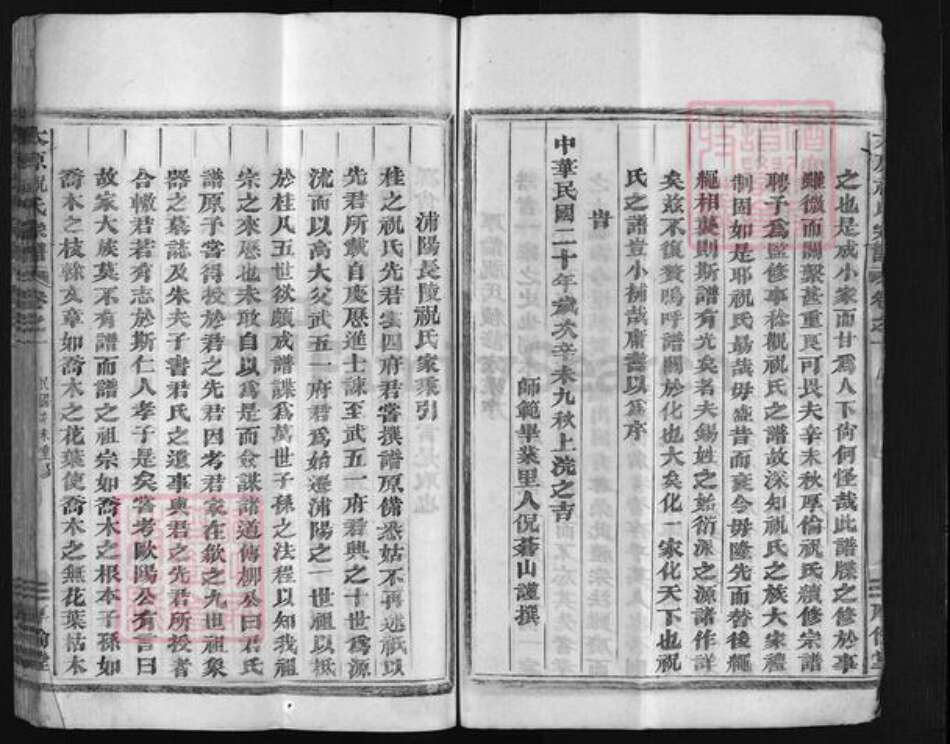 之也是戒小家而甘為人下何怪哉此譜牒之修於事
雖微而關繫甚重良可畏夫辛未秋厚倫祝氏續修宗譜
聘予為監修事稔觀祝氏之譜故深知祝氏之族大家禮
制固如是耶祝氏勗哉毋盛昔而衰今毋隆先而替後繩
繩相襲則斯譜有光矣者夫錫姓之始衍派之源諸作詳
矣茲不復贅嗚呼譜關於化也大矣化一家化天下也祝
氏之譜豈小補哉庸書以為序
旹
中華民國二十年歲次辛未九秋上浣之吉
師範畢業里人倪蓉山謹撰
浦陽長陵祝氏家乘引
桂之祝氏先君雲四府君嘗撰譜原備悉姑不再述祇以
先君所載自慶歷進士諫至武五一府君與之十世為源
流而以高大父武五一府君為始遷浦陽之一世祖以柢
於桂凡五世欲顛成譜諜為萬世子孫之法程以知我祖
宗之來歷也未敢自以為是而僉謀諸道傳柳公曰君氏
譜原予嘗得授於君之先君因考君家在歙之九世祖象
器之墓誌及朱夫子書君氏之遺事與君之先君所授者
合轍君若有志於斯仁人孝子是矣嘗考歐陽公有言曰
故家大族莫不有譜而譜之祖宗如喬木之根本子孫如
喬木之枝幹文章如喬木之花葉使喬木之無花葉枯木
太原祝氏宗譜 卷之一 民國辛未重修
厚倫堂